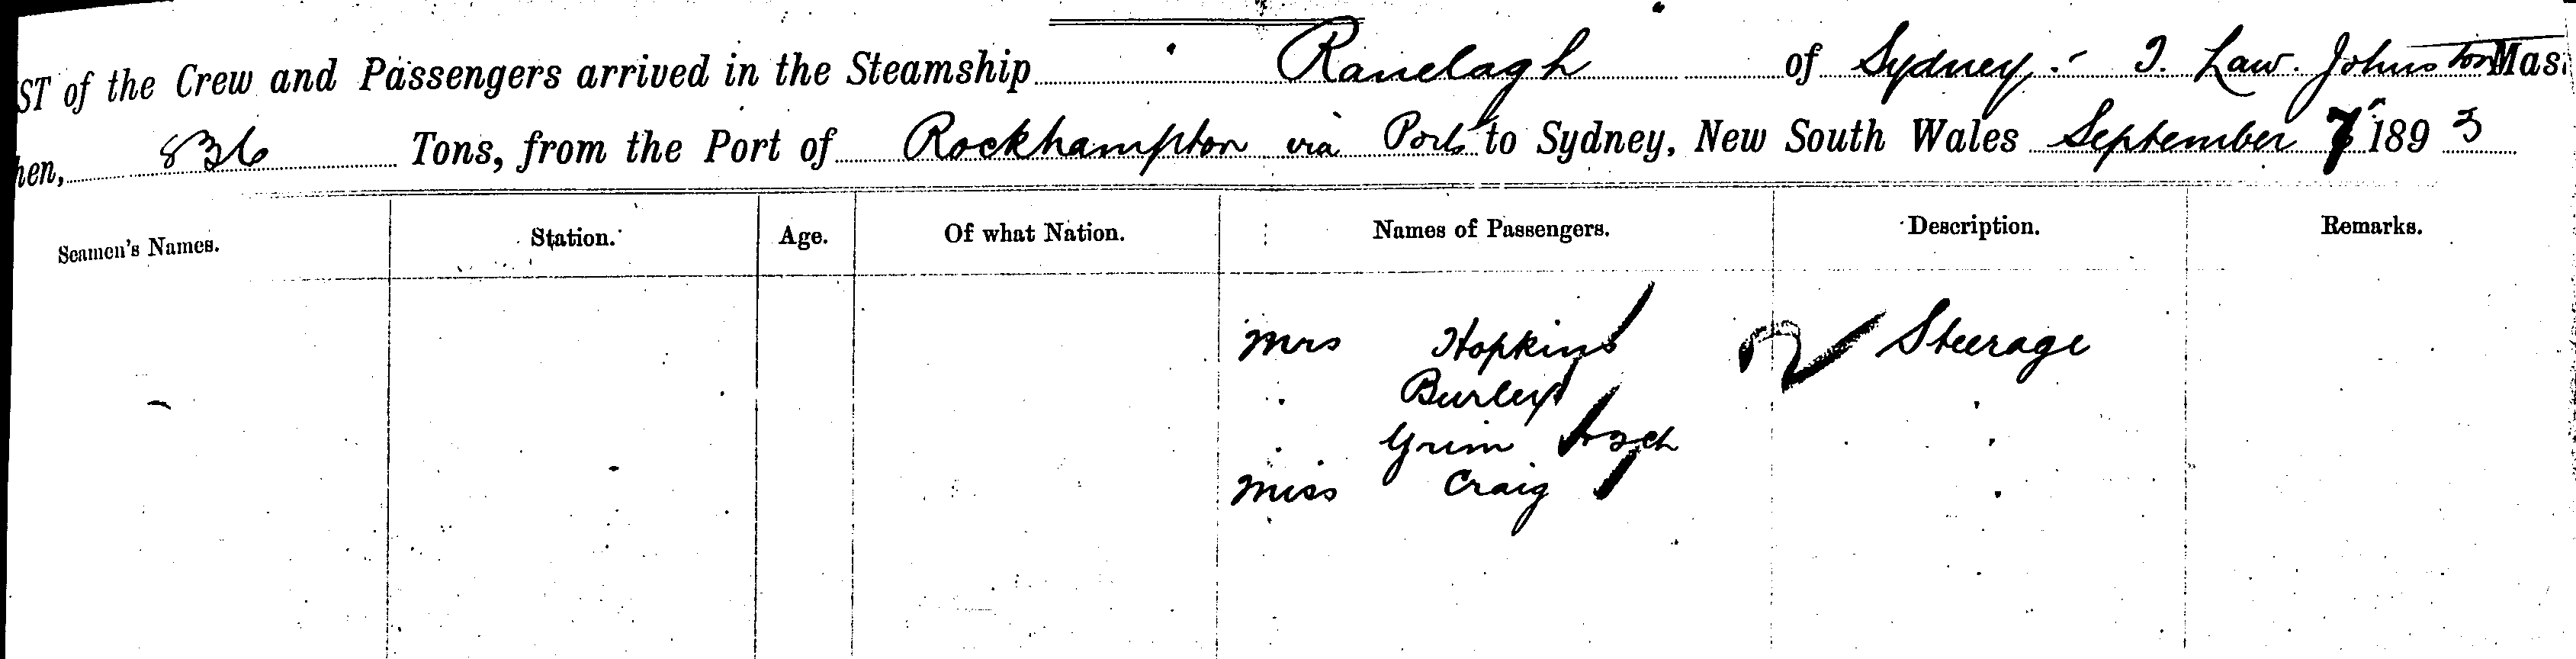 ST of the Crew and Passengers arrived in the Steamship Ranelagh of Sydney. T. Law. Johnston Mas
hen, 836 Tons, from the Port of Rockhampton via Ports to Sydney, New South Wales September 7 1893
Seamen's Names. Station. Age. Of what Nation. Names of Passengers. Description. Remarks.
Mrs Hopkins Steerage
" Burley "
" Grim "
Miss Craig "